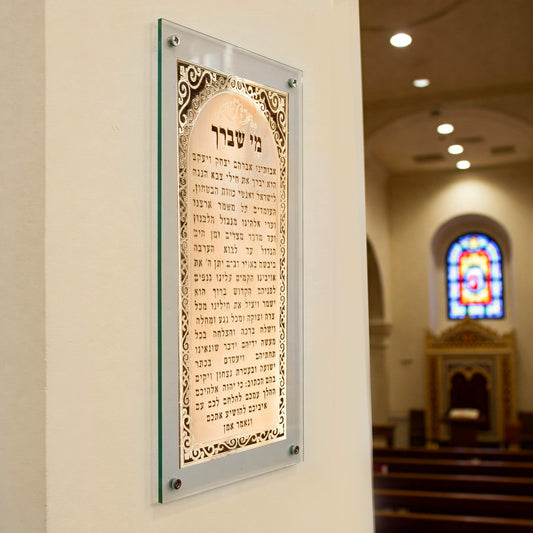 מי שברך
אבותינו אברהם יצחק ויעקב
הוא יברך את חילי צבא הגנה
לישראל ואנשי כחות הבטחון
העומדים על משמר ארצנו
וערי אלהינו מגבול הלבנון
ועד מדבר מצרים ומן הים
הגדול עד לבוא הערבה
ביבשה באויר ובים יתן ה' את
אויבינו הקמים עלינו נגפים
לפניהם הקדוש ברוך הוא
ישמר ויציל את חילינו מכל
צרה וצוקה ומכל נגע ומחלה
וישלח ברכה והצלחה בכל
מעשה ידיהם ידבר שונאינו
תחתיהם ויעטרם בכתר
ישועה ובעטרת נצחון ויקים
בהם הכתוב: כי יהוה אלהיכם
ההלך עמכם להלחם לכם עם
איביכם להושיע אתכם
ונאמר אמן